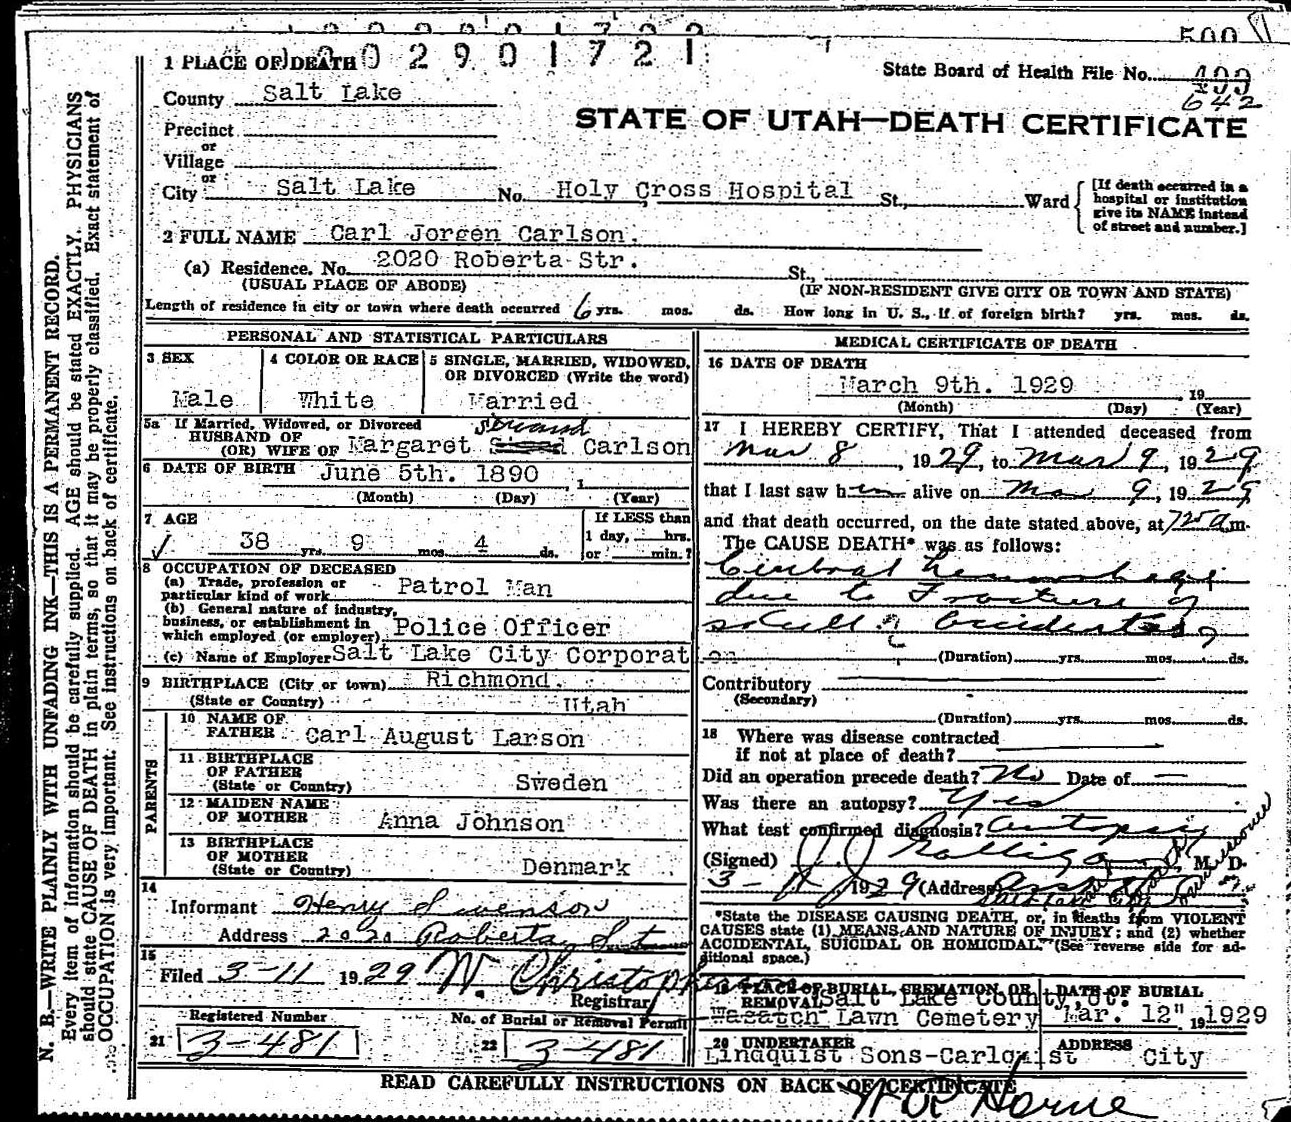 002901721
500
1 PLACE OF DEATH
State Board of Health File No. 499
642
County Salt Lake
STATE OF UTAH—DEATH CERTIFICATE
Precinct
or
Village
or
City Salt Lake No. Holy Cross Hospital St., Ward [If death occurred in a hospital or institution give its NAME instead of street and number.]
2 FULL NAME Carl Jorgen Carlson.
(a) Residence. No. 2020 Roberta Str. St.,
(USUAL PLACE OF ABODE) (IF NON-RESIDENT GIVE CITY OR TOWN AND STATE)
Length of residence in city or town where death occurred 6 yrs. mos. ds. How long in U. S., if of foreign birth? yrs. mos. ds.
PERSONAL AND STATISTICAL PARTICULARS
3 SEX
Male
4 COLOR OR RACE
White
5 SINGLE, MARRIED, WIDOWED, OR DIVORCED (Write the word)
Married
5a If Married, Widowed, or Divorced
HUSBAND OF
(OR) WIFE OF Margaret Carlson
6 DATE OF BIRTH June 5th. 1890 , 1
(Month) (Day) (Year)
7 AGE
38 yrs. 9 mos. 4 ds.
If LESS than
1 day, hrs.
or min.?
8 OCCUPATION OF DECEASED
(a) Trade, profession or
particular kind of work Patrol Man
(b) General nature of industry,
business, or establishment in
which employed (or employer) Police Officer
(c) Name of Employer Salt Lake City Corporation
9 BIRTHPLACE (City or town) Richmond.
(State or Country) Utah
PARENTS
10 NAME OF
FATHER Carl August Larson
11 BIRTHPLACE
OF FATHER
(State or Country) Sweden
12 MAIDEN NAME
OF MOTHER Anna Johnson
13 BIRTHPLACE
OF MOTHER
(State or Country) Denmark
14
Informant Henry Swenson
Address 2020 Roberta St
15
Filed 3-11 1929 W. Christopherson
Registrar
Registered Number
21 3-481
No. of Burial or Removal Permit
22 3-481
MEDICAL CERTIFICATE OF DEATH
16 DATE OF DEATH
March 9th. 1929 , 19
(Month) (Day) (Year)
17 I HEREBY CERTIFY, That I attended deceased from
Mar 8, 1929, to Mar 9, 1929
that I last saw him alive on Mar 9, 1929
and that death occurred, on the date stated above, at 725 a m.
The CAUSE DEATH* was as follows:
Cerebral hemorrhage
due to Fracture of
skull Accidental
(Duration) yrs. mos. ds.
Contributory
(Secondary)
(Duration) yrs. mos. ds.
18 Where was disease contracted
if not at place of death?
Did an operation precede death? No Date of —
Was there an autopsy? Yes
What test confirmed diagnosis? Autopsy
(Signed) J J Galligan M. D.
3-11 1929 (Address)
*State the DISEASE CAUSING DEATH, or, in deaths from VIOLENT
CAUSES state (1) MEANS AND NATURE OF INJURY; and (2) whether
ACCIDENTAL, SUICIDAL OR HOMICIDAL. (See reverse side for additional space.)
19 PLACE OF BURIAL, CREMATION, OR
REMOVAL Salt Lake County, Ut.
Wasatch Lawn Cemetery
DATE OF BURIAL
Mar. 12" 19 1929
20 UNDERTAKER
Lindquist Sons-Carlquist
ADDRESS
City
READ CAREFULLY INSTRUCTIONS ON BACK OF CERTIFICATE
W R Horne
N. B.—WRITE PLAINLY WITH UNFADING INK—THIS IS A PERMANENT RECORD.
Every item of information should be carefully supplied. AGE should be stated EXACTLY. PHYSICIANS
should state CAUSE OF DEATH in plain terms, so that it may be properly classified. Exact statement of
OCCUPATION is very important. See instructions on back of certificate.